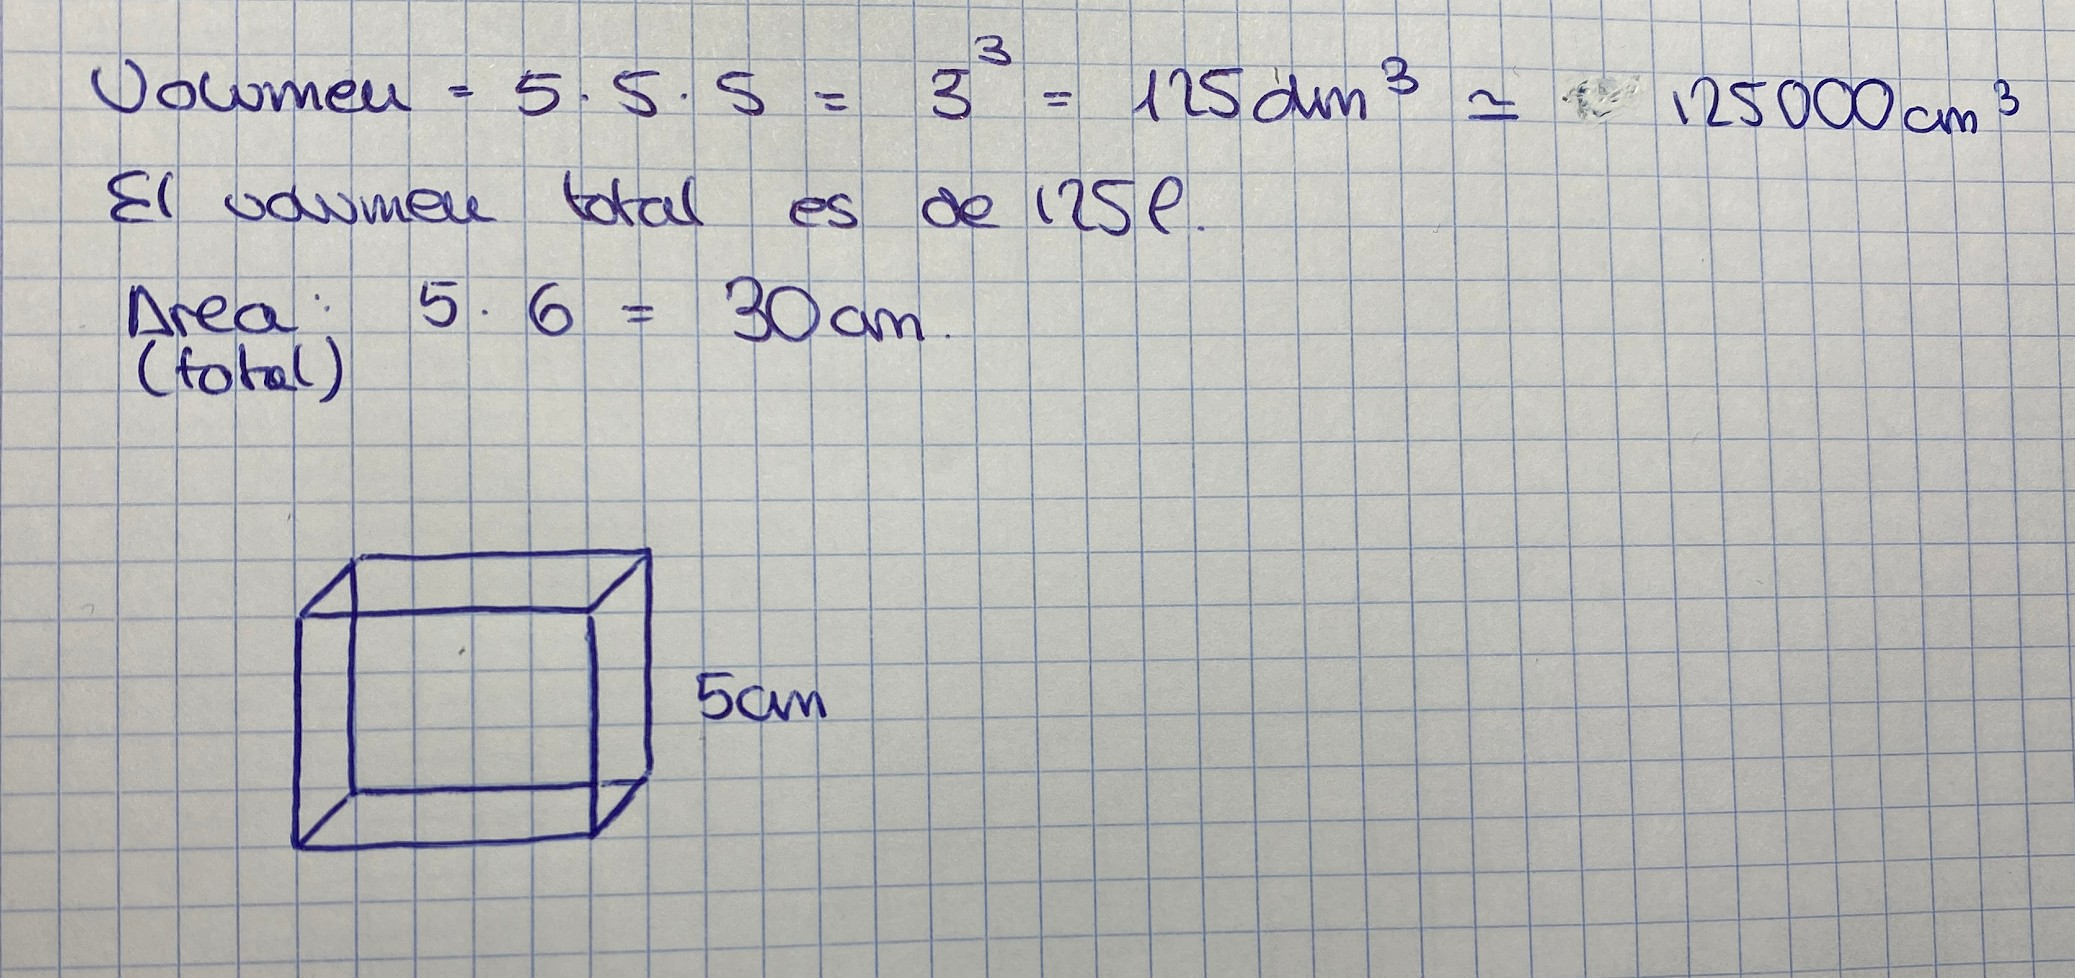 Volumen = 5 · 5 · 5 = 3³ = 125 dm³ ≃ 125000 cm³
El volumen total es de 125 l.
Area: 5 · 6 = 30 cm.
(total)
5cm